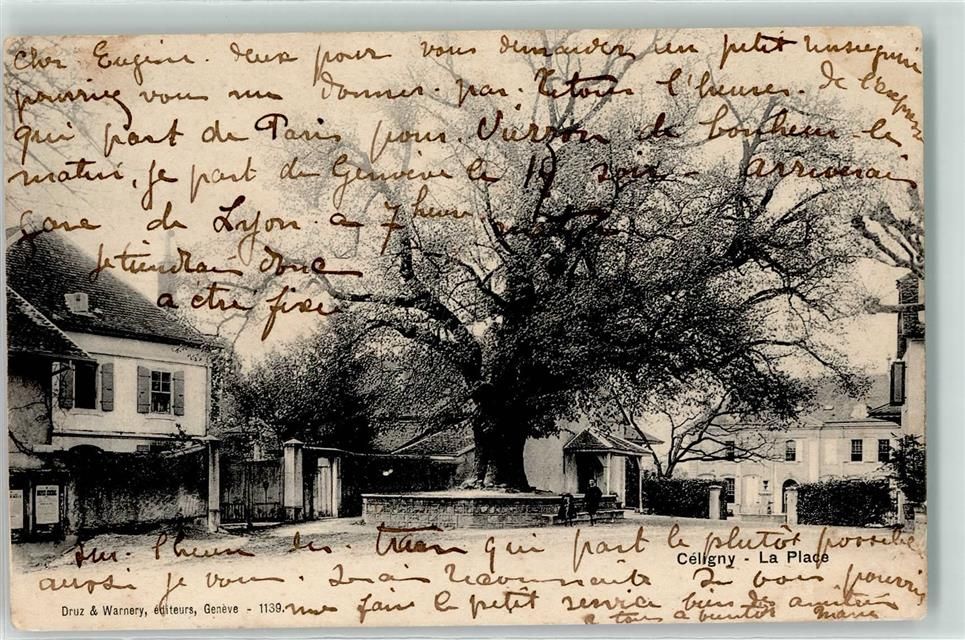 Cher Eugène. deux pour vous demander un petit renseig
pourriez vous me donner. par. retour l'heures. de l'express
qui part de Paris pour. Vierzon de bonheur le
matin, je part de Genève le 19 soir - arriverai
gare de Lyon. a 7 heur
je tiendrai donc
a etre fixe
sur. l'heure des. train qui part le plutôt possible
aussi je vous. serais reconnaissante si vous pouvriez
me faire le petit service bien des amitiés
a tous a bientôt Marie
Céligny - La Place
Druz & Warnery, éditeurs, Genève - 1139.